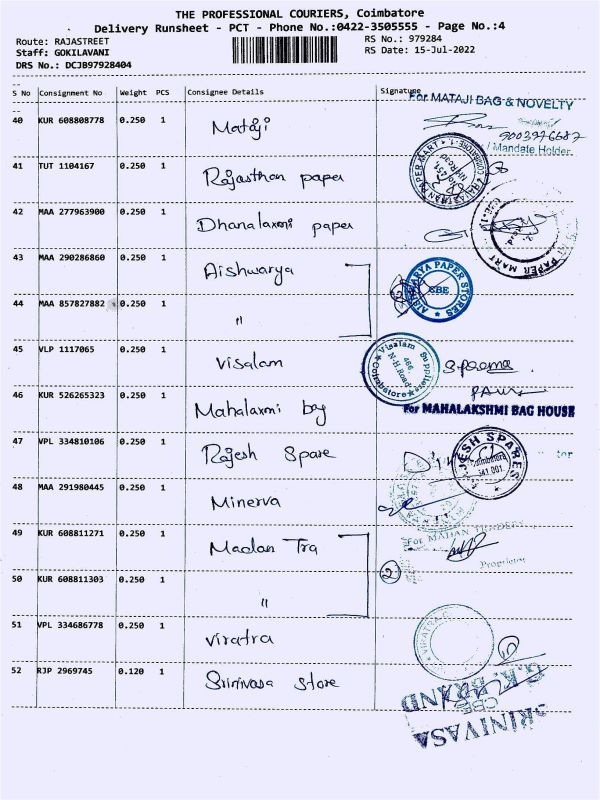 THE PROFESSIONAL COURIERS, Coimbatore
Delivery Runsheet - PCT - Phone No.:0422-3505555 - Page No.:4
Route: RAJASTREET
RS No.: 979284
Staff: GOKILAVANI
RS Date: 15-Jul-2022
DRS No.: DCJB97928404
S No Consignment No Weight PCS Consignee Details Signature
For MATAJI BAG & NOVELTY
40 KUR 608808778 0.250 1 Mataji
9003976687
/ Mandate Holder.
41 TUT 1104167 0.250 1 Rajasthan paper
42 MAA 277963900 0.250 1 Dhanalaxmi paper
PAPER MART
43 MAA 290286860 0.250 1 Aishwarya
AISHWARYA PAPER STORES
CBE
44 MAA 857827882 0.250 1 "
45 VLP 1117065 0.250 1 Visalam
Visalam Supplies
466,
N.H.Road
Coimbatore
46 KUR 526265323 0.250 1 Mahalaxmi bag
For MAHALAKSHMI BAG HOUSE
47 VPL 334810106 0.250 1 Rajesh Spare
RAJESH SPARES
Coimbatore
641 001
48 MAA 291980445 0.250 1 Minerva
49 KUR 608811271 0.250 1 Madan Tra
For MADAN TRADERS
Proprietor
2
50 KUR 608811303 0.250 1 "
51 VPL 334686778 0.250 1 Viratra
VIRATRA
52 RJP 2969745 0.120 1 Srinivasa Store
G.K. BRAND
CBE
SRINIVASA